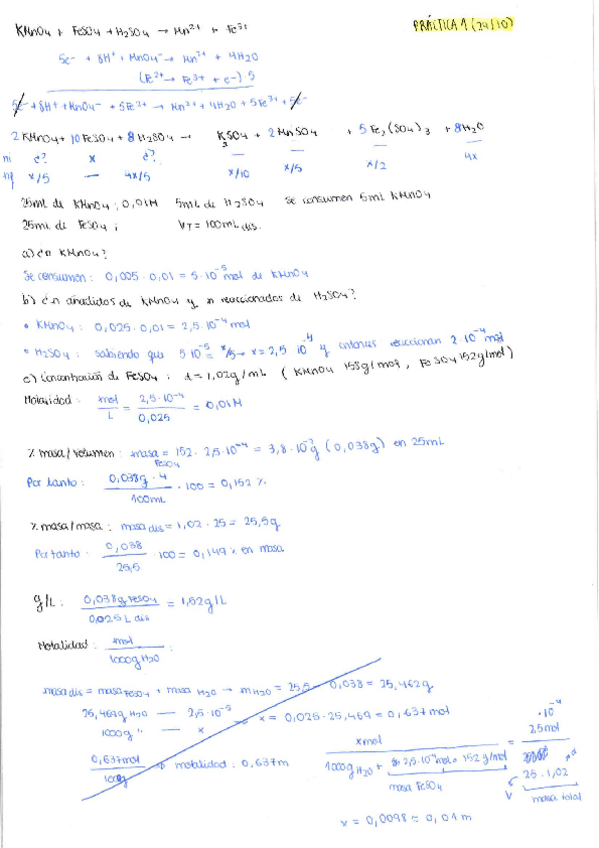 KMnO4 + FeSO4 + H2SO4 → Mn2+ + Fe3+
PRÁCTICA 1 (24/10)
5e- + 8H+ + MnO4- → Mn2+ + 4H2O
(Fe2+ → Fe3+ + e-) · 5
5e- + 8H+ + MnO4- + 5Fe2+ → Mn2+ + 4H2O + 5Fe3+ + 5e-
2 KMnO4 + 10 FeSO4 + 8 H2SO4 → K2SO4 + 2 MnSO4 + 5 Fe2(SO4)3 + 8 H2O
ni ¿? x ¿? — — — —
x/5 — 4x/5 x/10 x/5 x/2 4x
25mL de KMnO4 ; 0,01M 5mL de H2SO4 Se consumen 5mL KMnO4
25mL de FeSO4 ; VT = 100mL dis.
a) ¿n KMnO4?
Se consumen : 0,005 · 0,01 = 5·10-5 mol de KMnO4
b) ¿n añadidos de KMnO4 y n reaccionados de H2SO4?
• KMnO4 : 0,025 · 0,01 = 2,5·10-4 mol
• H2SO4 : sabiendo que 5·10-5 = x/5 → x = 2,5·10-4 y entonces reaccionan 2·10-4 mol
c) Concentración de FeSO4 : d = 1,02g/mL ( KMnO4 158g/mol , FeSO4 152g/mol)
Molaridad : mol/L = 2,5·10-4/0,025 = 0,01M
% masa/volumen : masa FeSO4 = 152 · 2,5·10-4 = 3,8·10-2 g (0,038g) en 25mL
Por tanto : 0,038g · 4/100mL · 100 = 0,152 %
% masa/masa : masa dis = 1,02 · 25 = 25,5g
Por tanto : 0,038/25,5 · 100 = 0,149 % en masa
g/L : 0,038g FeSO4/0,025 L dis = 1,52g/L
Molalidad : mol/1000g H2O :
masa dis = masa FeSO4 + masa H2O → m H2O = 25,5 - 0,038 = 25,462g
25,469g H2O — 2,5·10-5
1000g " — x → x = 0,025 · 25,469 = 0,637mol
0,637mol/1000g → molalidad : 0,637m
x mol/1000g H2O + 2,5·10-4 mol · 152 g/mol = 2,5 mol ·10-4/25 · 1,02
masa FeSO4
V d
masa total
x = 0,0098 ≈ 0,01 m